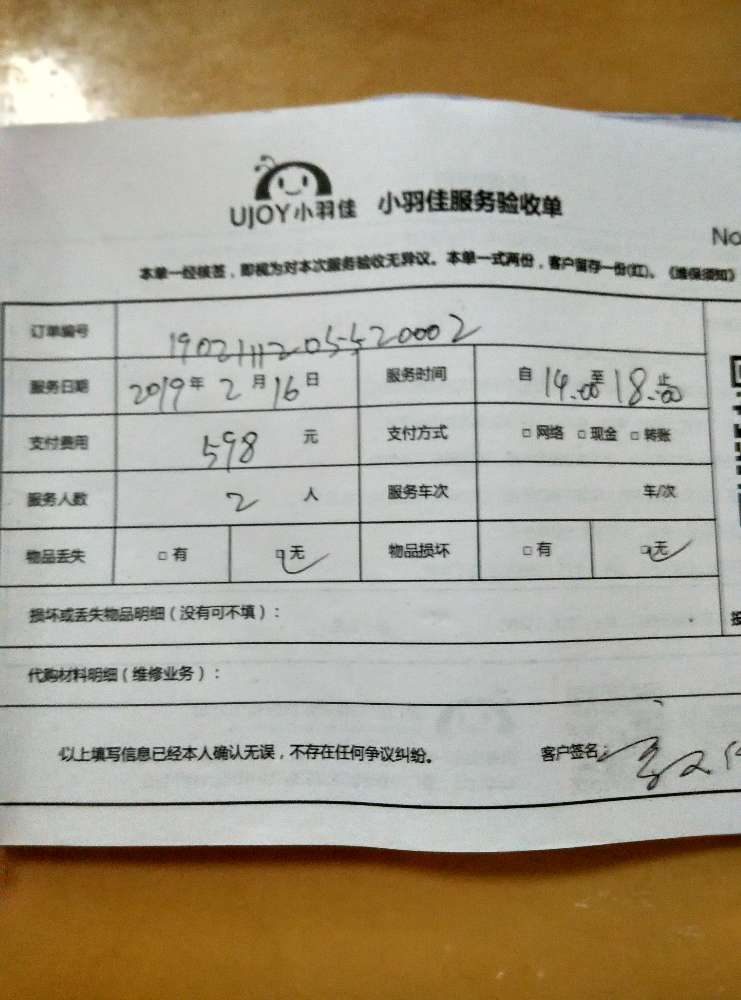 UJOY小羽佳 小羽佳服务验收单
No
本单一经核签，即视为对本次服务验收无异议。本单一式两份，客户留存一份(红)。《维保须知》
订单编号 19021112055420002
服务日期 2019年2月16日 服务时间 自14:00至18:00止
支付费用 598元 支付方式 □网络 □现金 □转账
服务人数 2人 服务车次 车/次
物品丢失 □有 □无 物品损坏 □有 □无
损坏或丢失物品明细（没有可不填）：
代购材料明细（维修业务）：
以上填写信息已经本人确认无误，不存在任何争议纠纷。 客户签名：